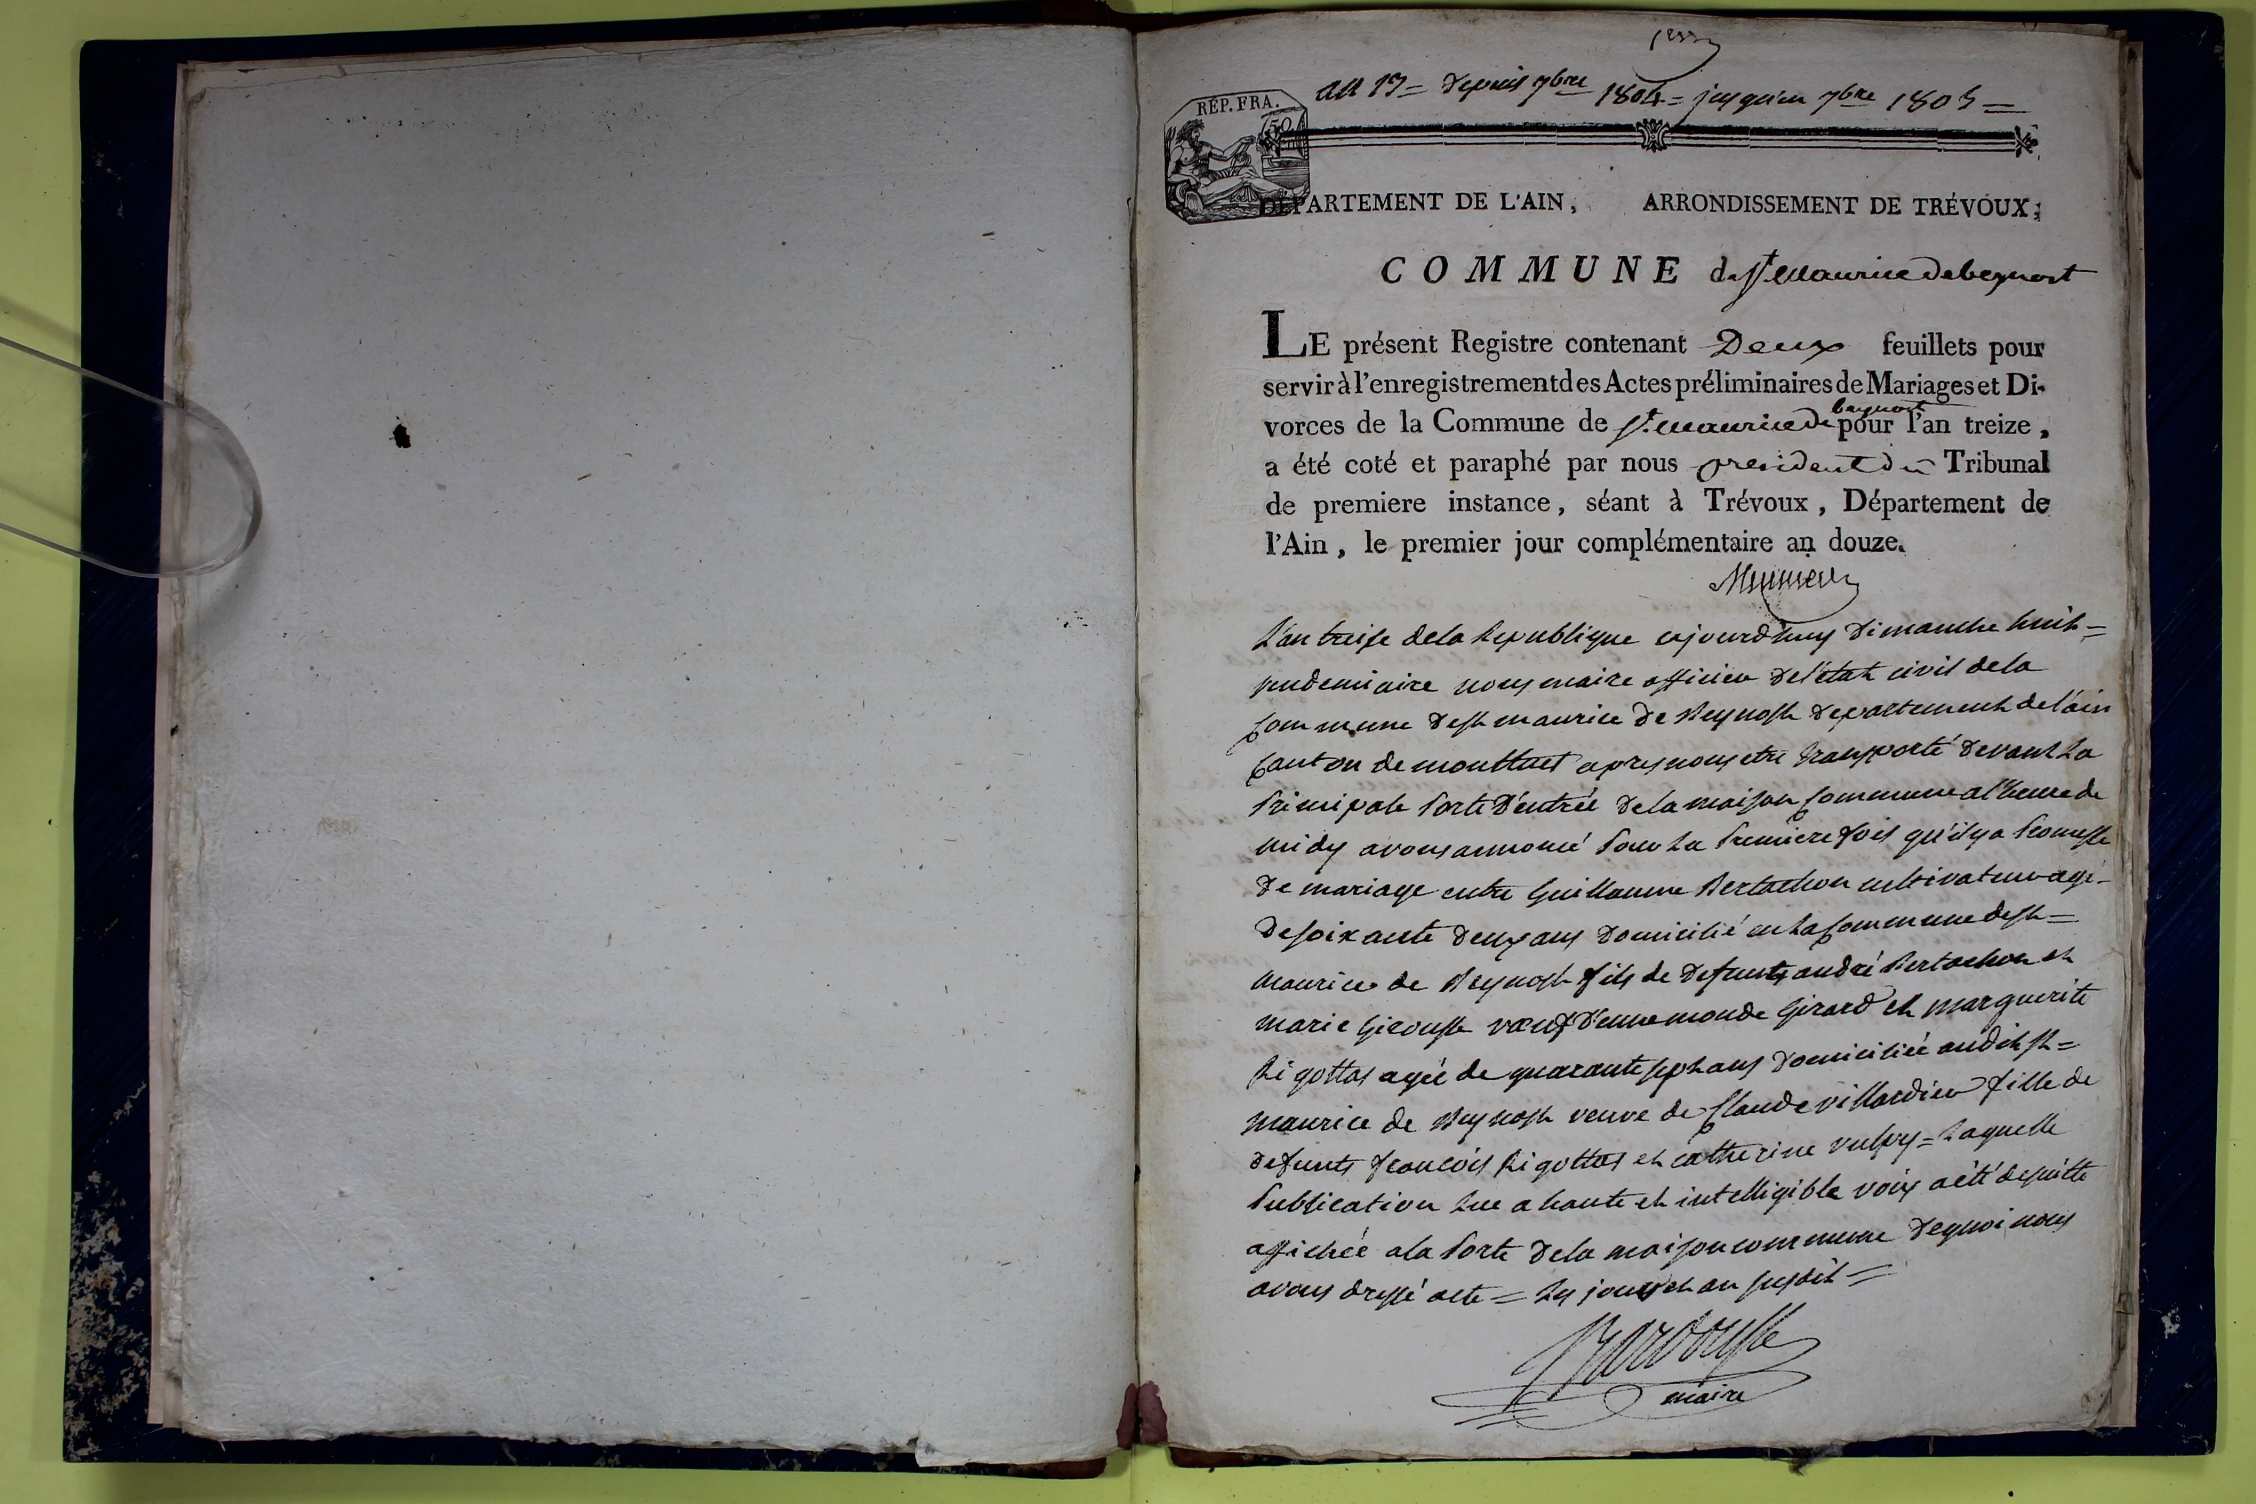 an 13 = depuis 7bre 1804 = jusqu'en 7bre 1805 =
RÉP. FRA.
DÉPARTEMENT DE L'AIN, ARRONDISSEMENT DE TRÉVOUX;
COMMUNE de St. Maurice de beynost
LE présent Registre contenant Deux feuillets pour
servir à l'enregistrement des Actes préliminaires de Mariages et Di-
vorces de la Commune de St. maurice de beynost pour l'an treize,
a été coté et paraphé par nous president du Tribunal
de premiere instance, séant à Trévoux, Département de
l'Ain, le premier jour complémentaire an douze.
L'an treise de la Republique ajourd'huy dimanche huit =
vendemiaire nous maire officier de l'état civil de la
Commune de st maurice de Beynost departement de l'ain
Canton de montluel apres nous etre transporté devant La
Principale Porte d'entrée de la maison Commune a l'heure de
midy avons annoncé Pour La Premiere fois qu'il y a Promesse
de mariage entre Guillaume Bertachon cultivateur agé -
de soixante deux ans domicilié en La Commune de st =
maurice de Beynost fils de defunts andré Bertachon et
marie Girousse veuf d'ennemonde Girard et marguerite
Rigottas agée de quarante sept ans domiciliée audit st =
maurice de Beynost veuve de Claude villardier fille de
defunts francois Rigottas et catherine vulpy = Laquelle
Publication Lue a haute et intelligible voix a été de suitte
affichée a la Porte de la maison commune de quoi nous
avons dressé acte = Les jours et an susdit =
maire